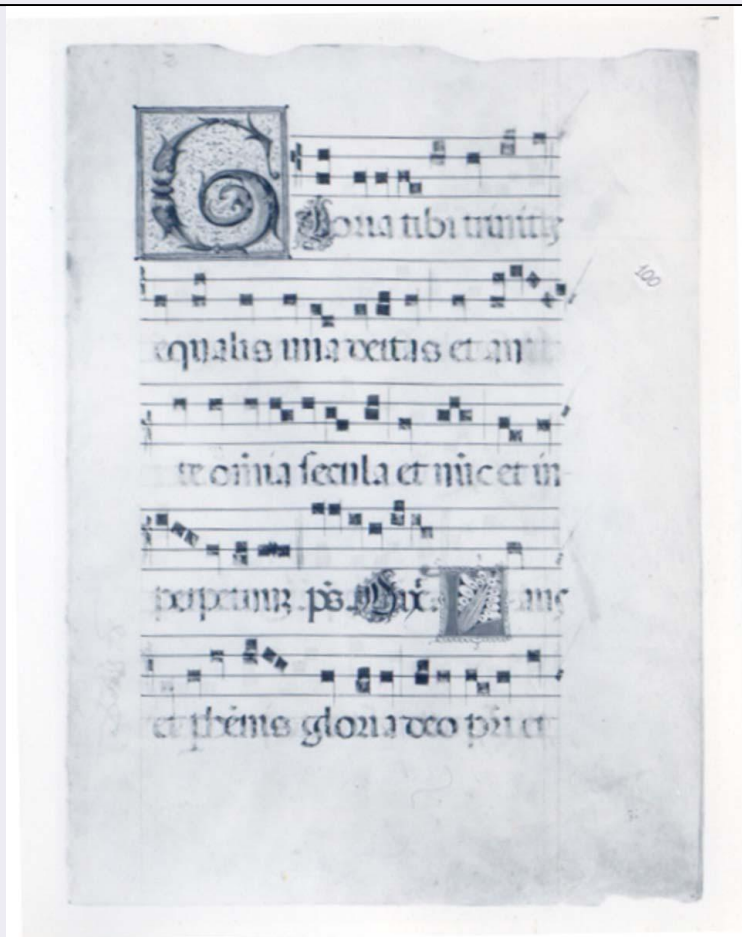 G Loria tibi trinitas
100
equalis una deitas et an
te om̄ia secula et nūc et in
perpetuuꝫ p̄s. Dix̄. L aus
et phēnis gloria deo pr̄i et